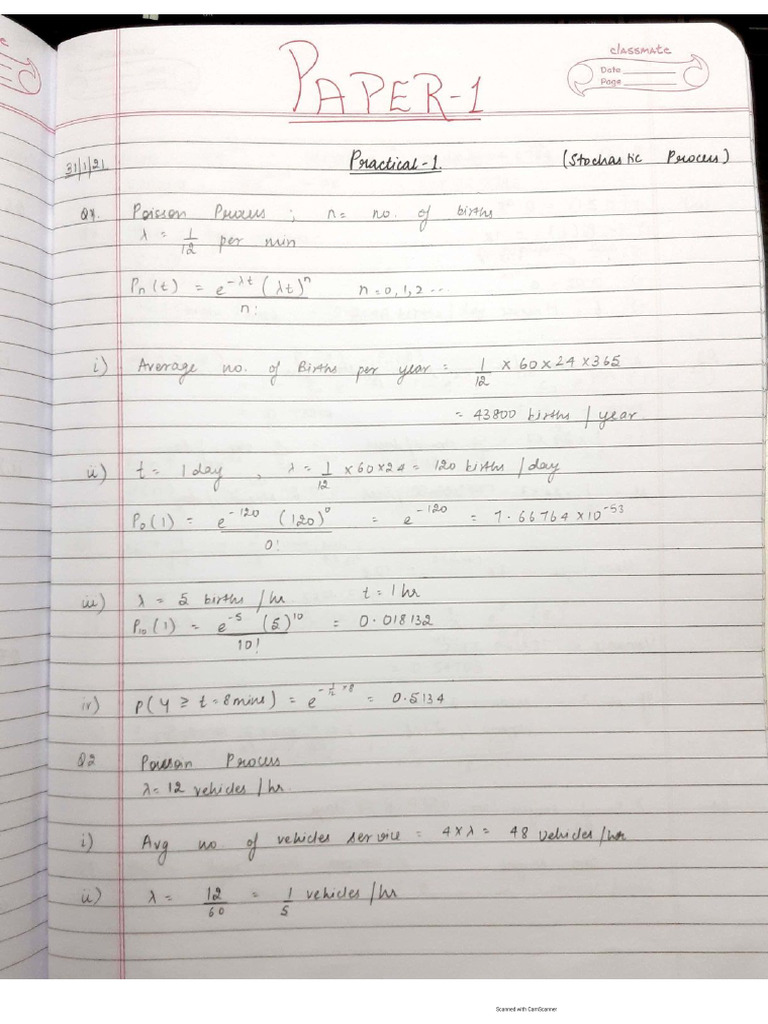 classmate
Date
Page
PAPER-1
31/1/21 Practical-1. (Stochastic Process)
Q1. Poisson Process ; n = no. of births
λ = 1/12 per min
Pn(t) = e^-λt (λt)^n / n! n = 0, 1, 2 ...
i) Average no. of Births per year = 1/12 × 60 × 24 × 365
= 43800 births / year
ii) t = 1 day , λ = 1/12 × 60 × 24 = 120 births / day
P0(1) = e^-120 (120)^0 / 0! = e^-120 = 7.66764 × 10^-53
iii) λ = 5 births / hr t = 1 hr
P10(1) = e^-5 (5)^10 / 10! = 0.018132
iv) P(Y ≥ t = 8 mins) = e^-1/12 × 8 = 0.5134
Q2 Poisson Process
λ = 12 vehicles / hr.
i) Avg no of vehicles service = 4 × λ = 48 vehicles / hr
ii) λ = 12/60 = 1/5 vehicles / hr
Scanned with CamScanner